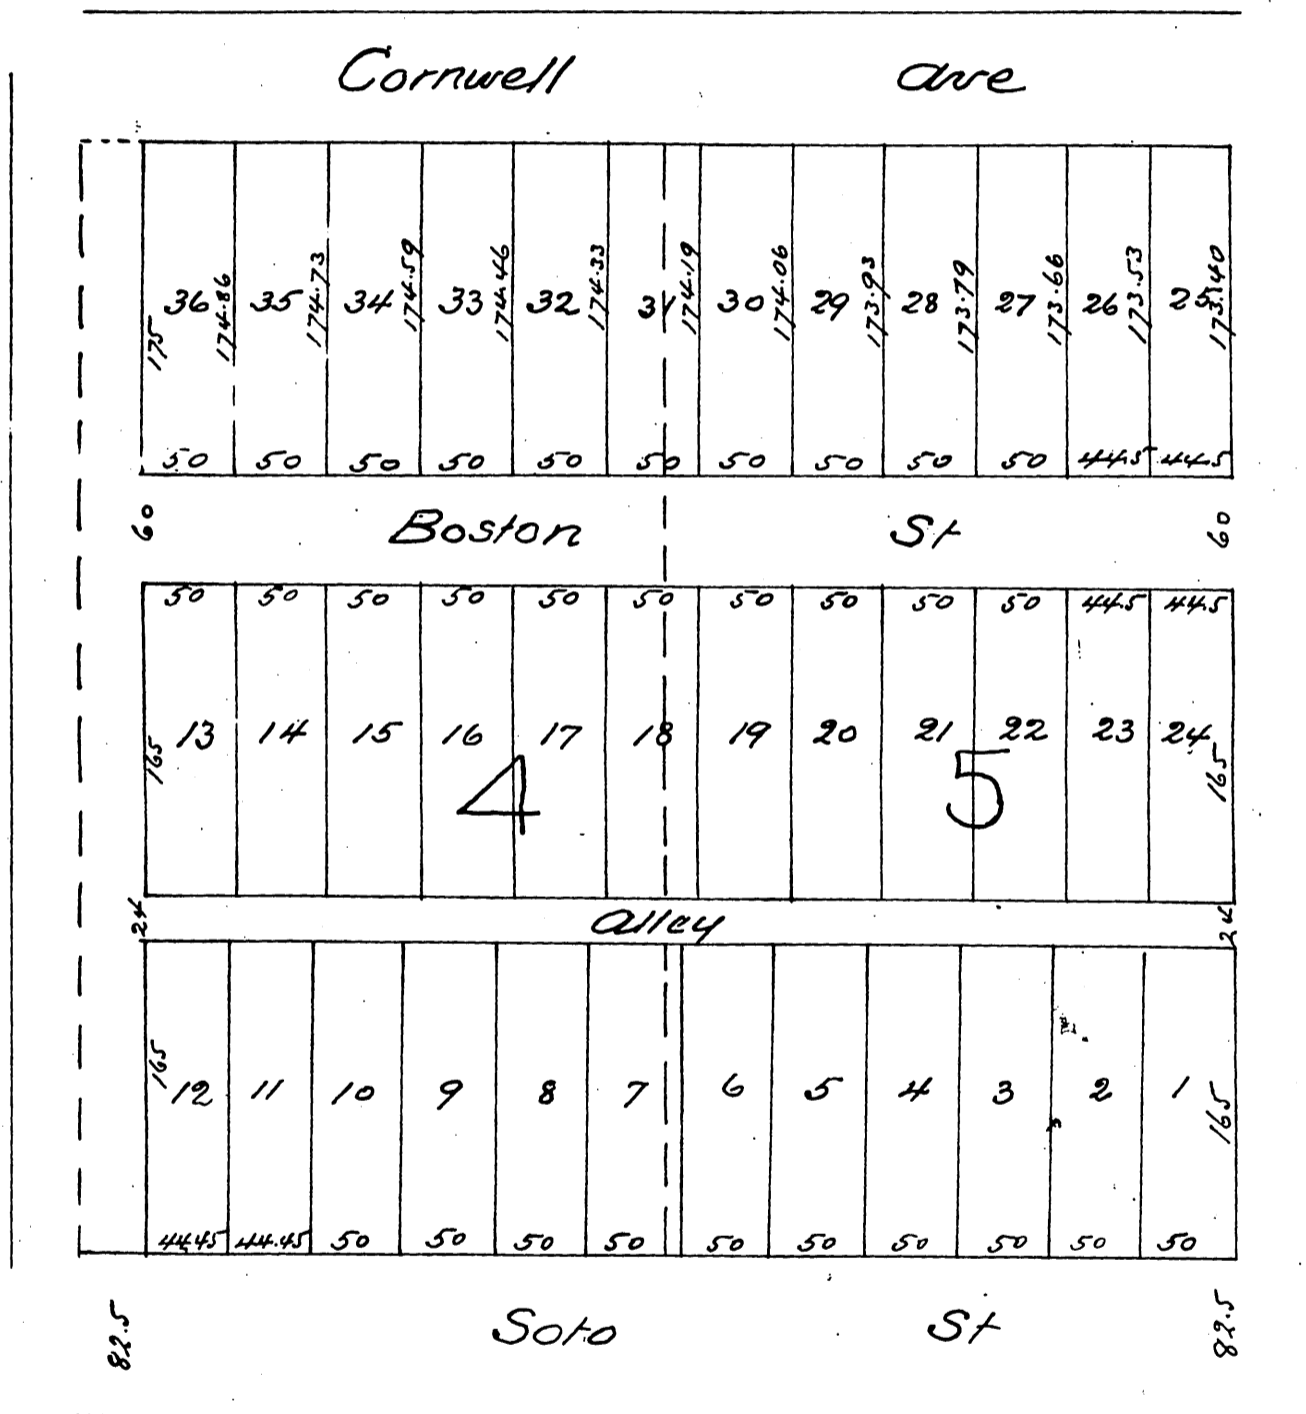 Cornwell Ave
36 35 34 33 32 31 30 29 28 27 26 25
175 174.86 174.73 174.59 174.46 174.33 174.19 174.06 173.93 173.79 173.66 173.53 173.40
50 50 50 50 50 50 50 50 50 50 44.5 44.5
60 Boston St 60
50 50 50 50 50 50 50 50 50 50 44.5 44.5
13 14 15 16 17 18 19 20 21 22 23 24
165 4 5 165
24 Alley 24
165 12 11 10 9 8 7 6 5 4 3 2 1 165
44.45 44.45 50 50 50 50 50 50 50 50 50 50
82.5 Soto St 82.5